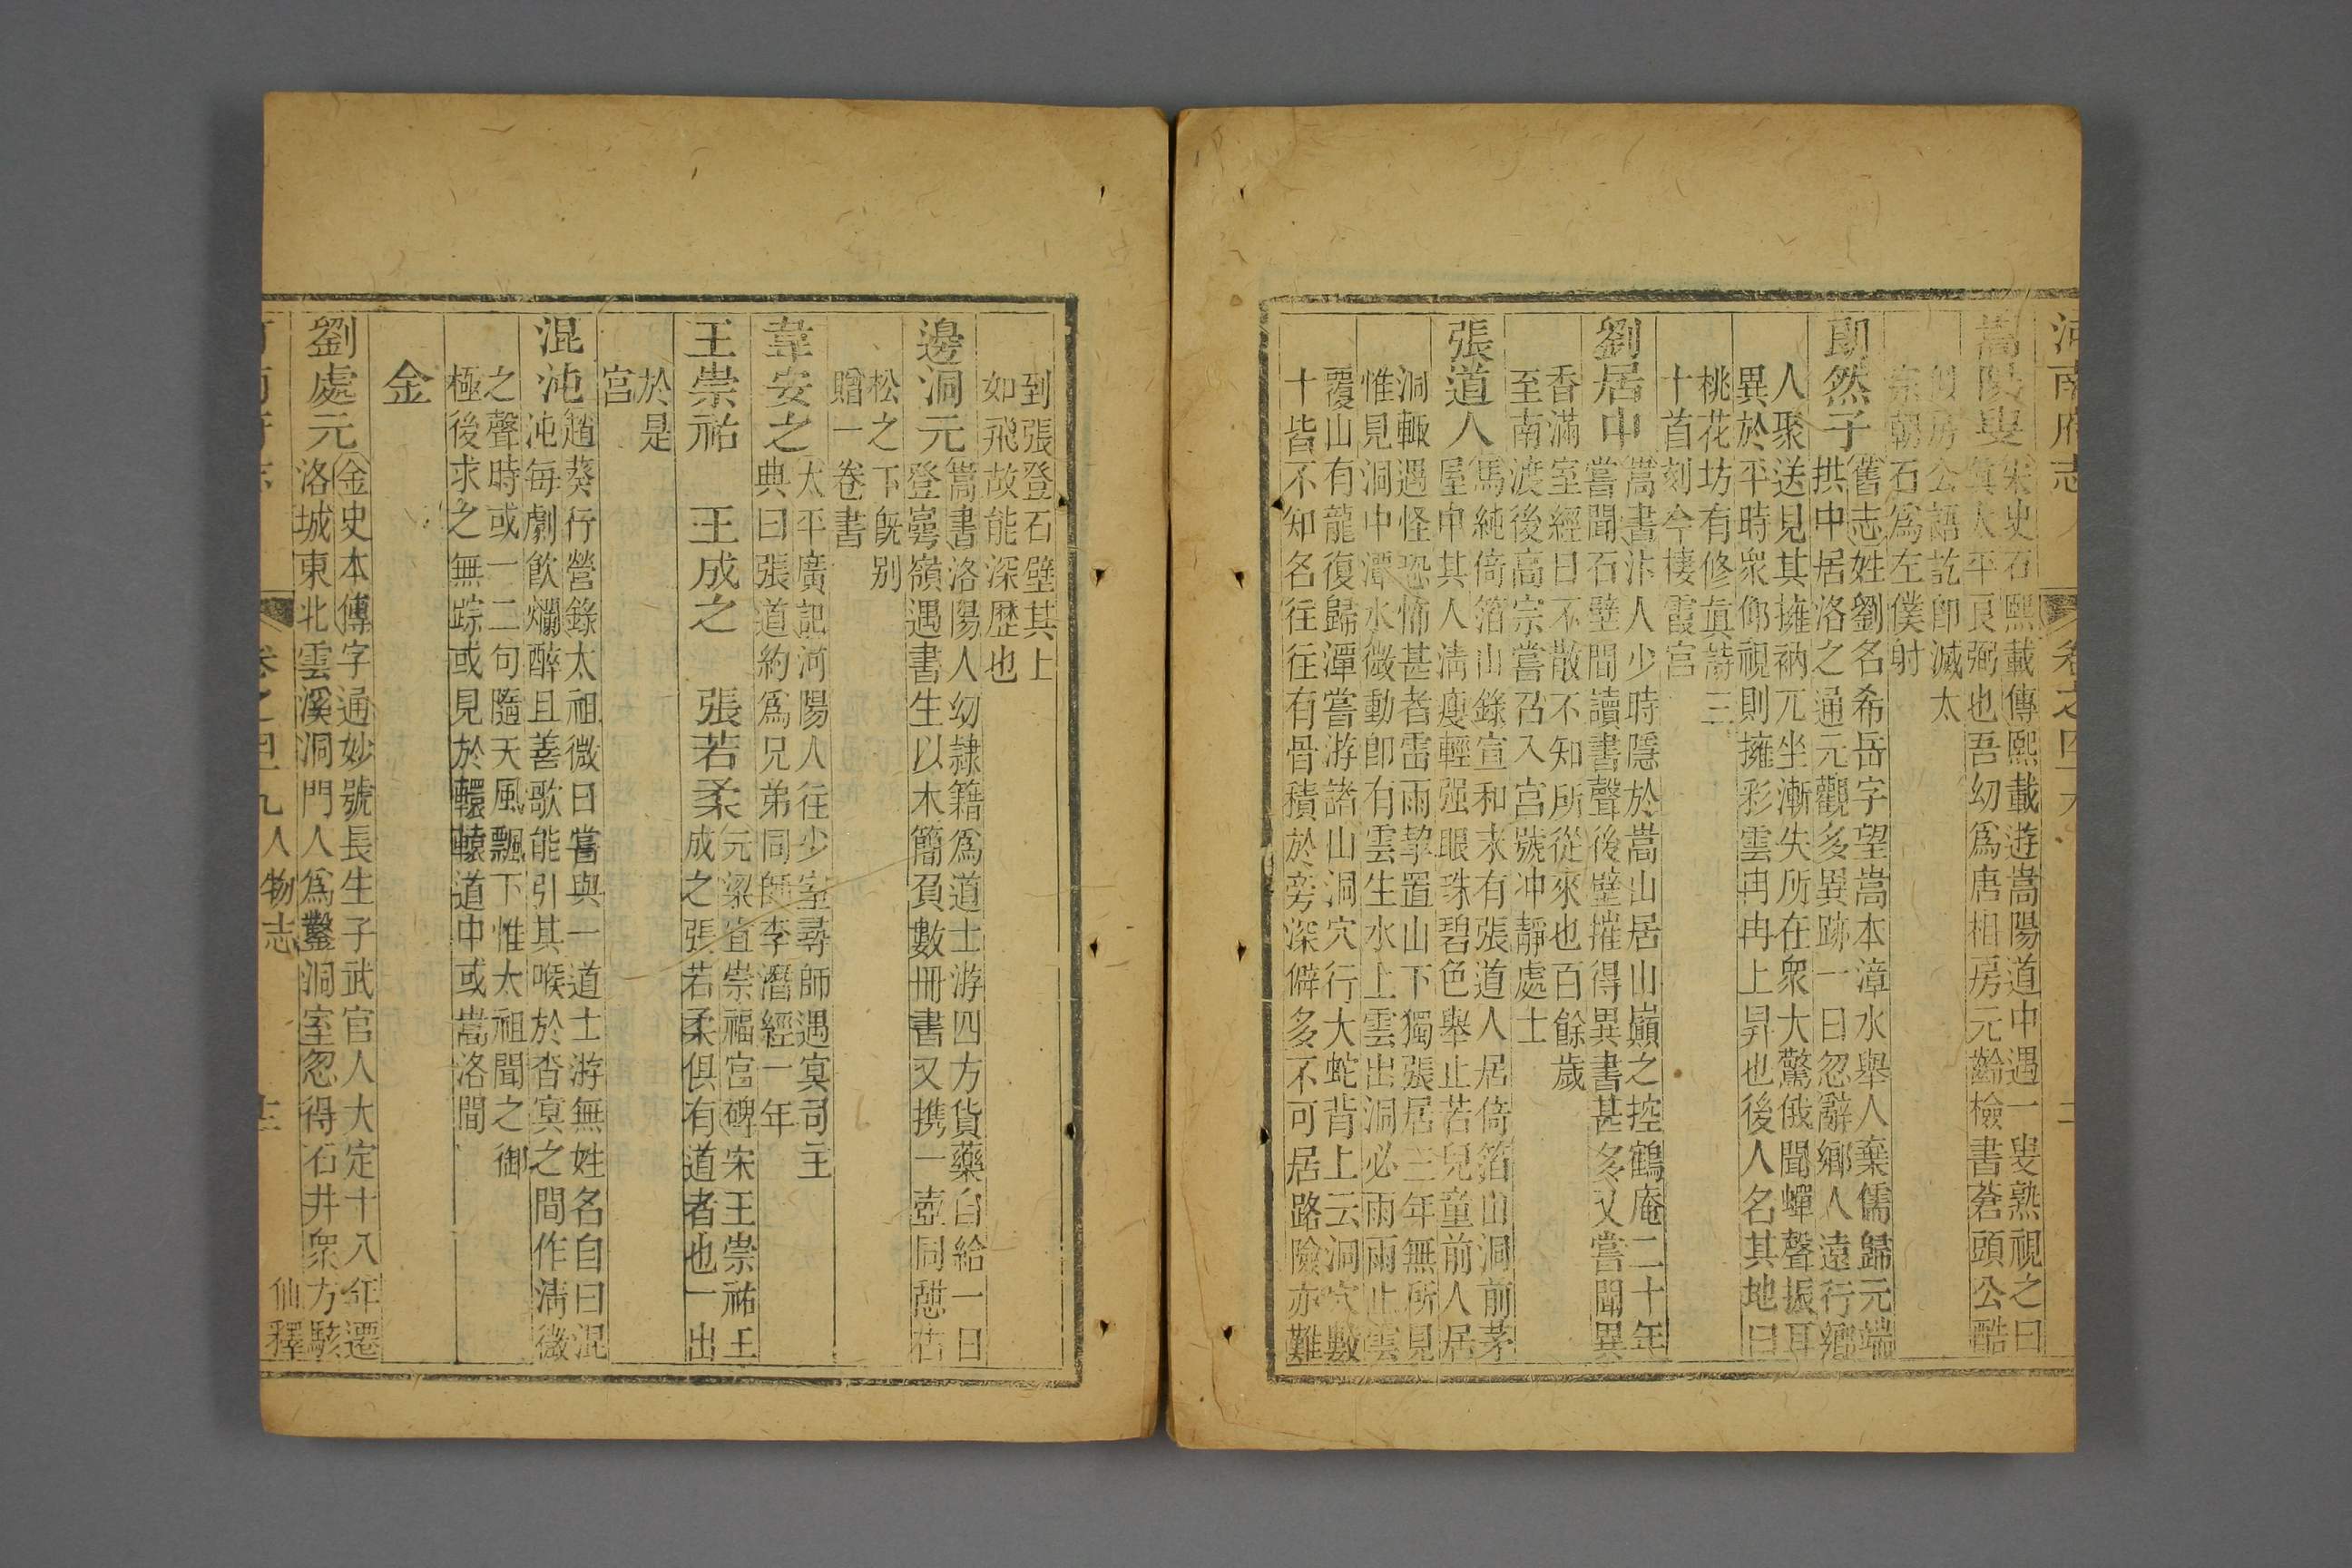 河南府志
卷之四十九
嵩陽叟
宋史石熙載傳熙載遊嵩陽道中遇一叟熟視之曰
真太平良弼也吾幼爲唐相房元齡檢書蒼頭公酷
似房公語訖卽滅太
宗朝石爲左僕射
卽然子
舊志姓劉名希岳字望嵩本漳水舉人棄儒歸元端
拱中居洛之通元觀多異跡一日忽辭鄉人遠行鄉
人聚送見其擁衲兀坐漸失所在衆大驚俄聞蟬聲振耳
異於平時衆仰視則擁彩雲冉冉上昇也後人名其地曰
桃花坊有修真詩三
十首刻今棲霞宫
劉居中
嵩書汴人少時隱於嵩山居山巔之控鶴庵二十年
嘗聞石壁間讀書聲後壁摧得異書甚多又嘗聞異
香滿室經日不散不知所從來也百餘歲
至南渡後高宗嘗召入宫號冲靜處士
張道人
馬純倚箔山錄宣和末有張道人居倚箔山洞前茅
屋中其人淸瘦輕强眼珠碧色舉止若兒童前人居
洞輙遇怪恐怖甚者雷雨挈置山下獨張居三年無所見
惟見洞中潭水微動卽有雲生水上雲出洞必雨雨止雲
覆山有龍復歸潭嘗游諸山洞穴行大蛇背上云洞穴數
十皆不知名往往有骨積於旁深僻多不可居路險亦難
到張登石壁其上
如飛故能深歷也
邊洞元
嵩書洛陽人幼隷籍爲道士游四方貨藥自給一日
登嶌嶺遇書生以木簡負數冊書又携一壺同憇古
松之下旣别
贈一卷書
韋安之
太平廣記河陽人往少室尋師遇冥司主
典曰張道約爲兄弟同師李潛經一年
王崇祐　王成之　張若柔
元梁宜崇福宫碑宋王崇祐王
成之張若柔俱有道者也一出
於是
宫
混沌
趙葵行營錄太祖微日嘗與一道士游無姓名自曰混
沌每劇飲爛醉且善歌能引其喉於杳冥之間作淸微
之聲時或一二句隨天風飄下惟太祖聞之御
極後求之無踪或見於轘轅道中或嵩洛間
金
劉處元
金史本傳字通妙號長生子武官人大定十八年遷
洛城東北雲溪洞門人爲鑿洞室忽得石井衆方駭
卷之四十九人物志
仙釋